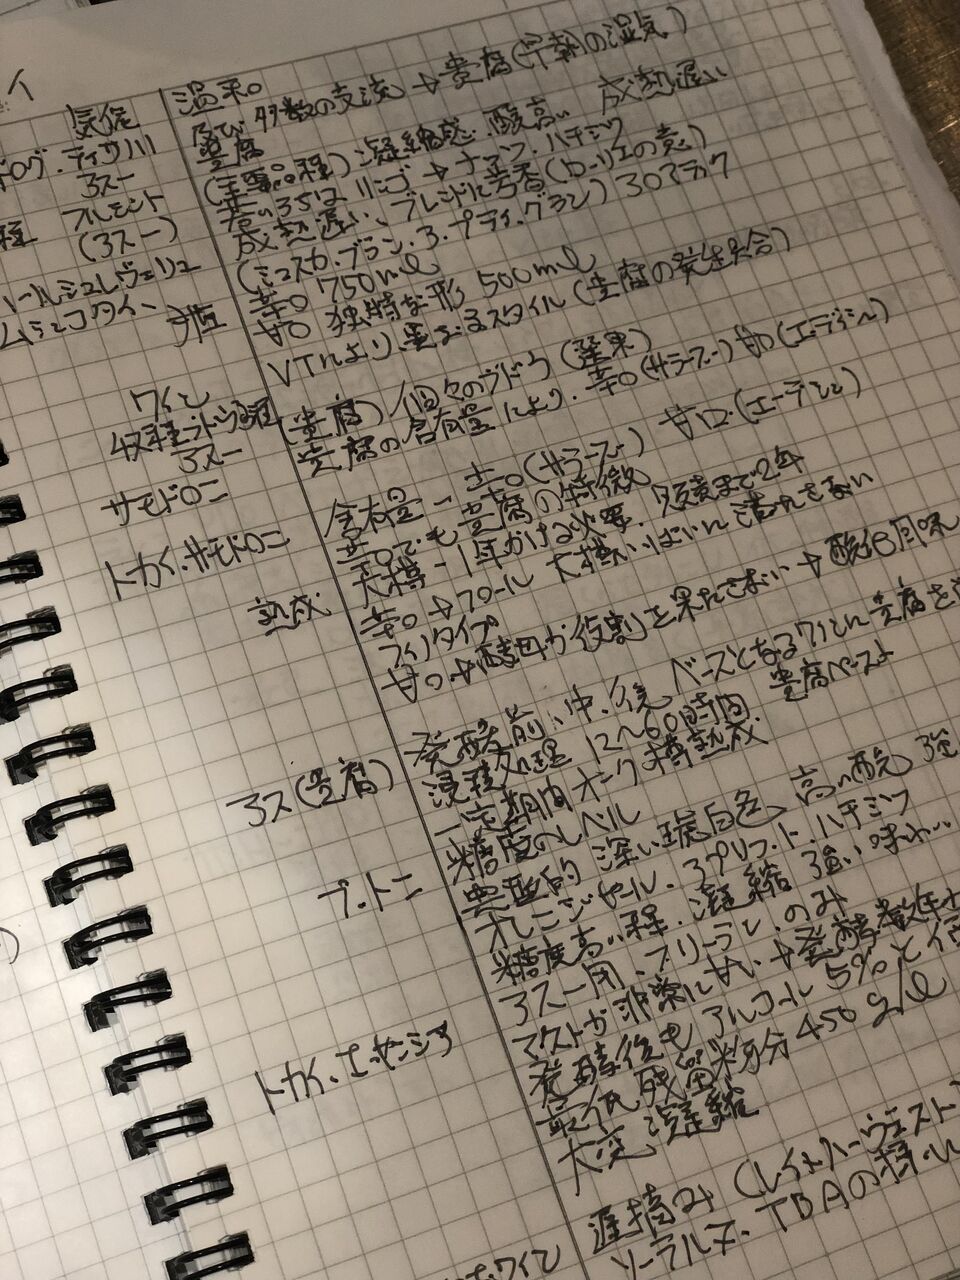 イ
気候 温和。
ボドログ・ティサ川 及び多数の支流→貴腐(早朝の湿気)
アスー 貴腐
種 フルミント (主要品種)凝縮感 酸高い 成熟遅い
(アスー) 若いうちはリンゴ→ナッツ、ハチミツ
ハールシュレヴェリュ 成熟遅い、ブレンドに芳香(ロ
(ミュスカ・ブラン・ア・プティ・グラン)アロマティク
瓶 辛口 750ml
甘口 独特な形 500ml
ワイン VTにより、異なるスタイル(貴腐の発生具合)
収穫ブドウの種
アスー (貴腐)個々のブドウ(選果)
サモロドニ 貴腐の含有量により、辛口(サラーズ) 甘口(エーデシュ)
トカイ・サモロドニ 含有量 辛口(サラーズ) 甘口(エーデシュ)
辛口でも貴腐の特徴
熟成 大樽 1年かける必要、販売まで2年
辛口→フロール 大樽いっぱいに満たさない
フィノタイプ
甘口→酵母が役割を果たさない→酸化風味
アス(貴腐) 発酵前、中、後、ベースとなるワインに貴腐を
浸漬処理 12〜60時間 貴腐ペースト
一定期間オーク樽熟成
プットニ 糖度のレベル
典型的 深い琥珀色、高い酸、強
オレンジピール、アプリコット、ハチミツ
糖度高い程、凝縮 強い味わい
トカイ・エッセンシア アスー用、フリーラン、のみ
マストが非常に甘い→発酵数年
発酵後もアルコール5%と低
最低残留糖分 450 g/l
大変凝縮
遅摘み(レイトハーヴェスト
TBAの
ワイン